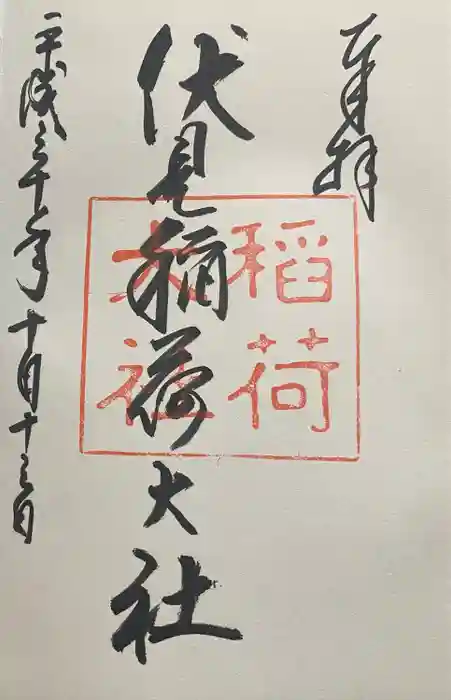 奉拝
伏見稲荷大社
稲荷
大社
平成三十年十月十三日